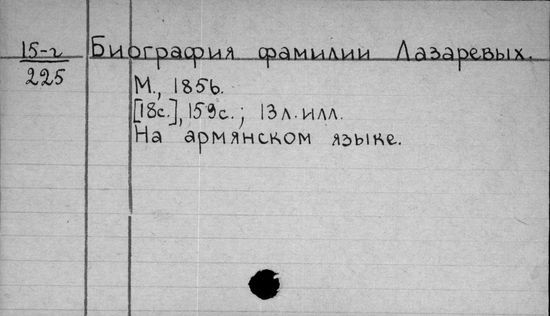 15-г
225
Биография фамилии Лазаревых.
М., 1856.
[18с.], 159с.; 13 л. илл.
На армянском языке.